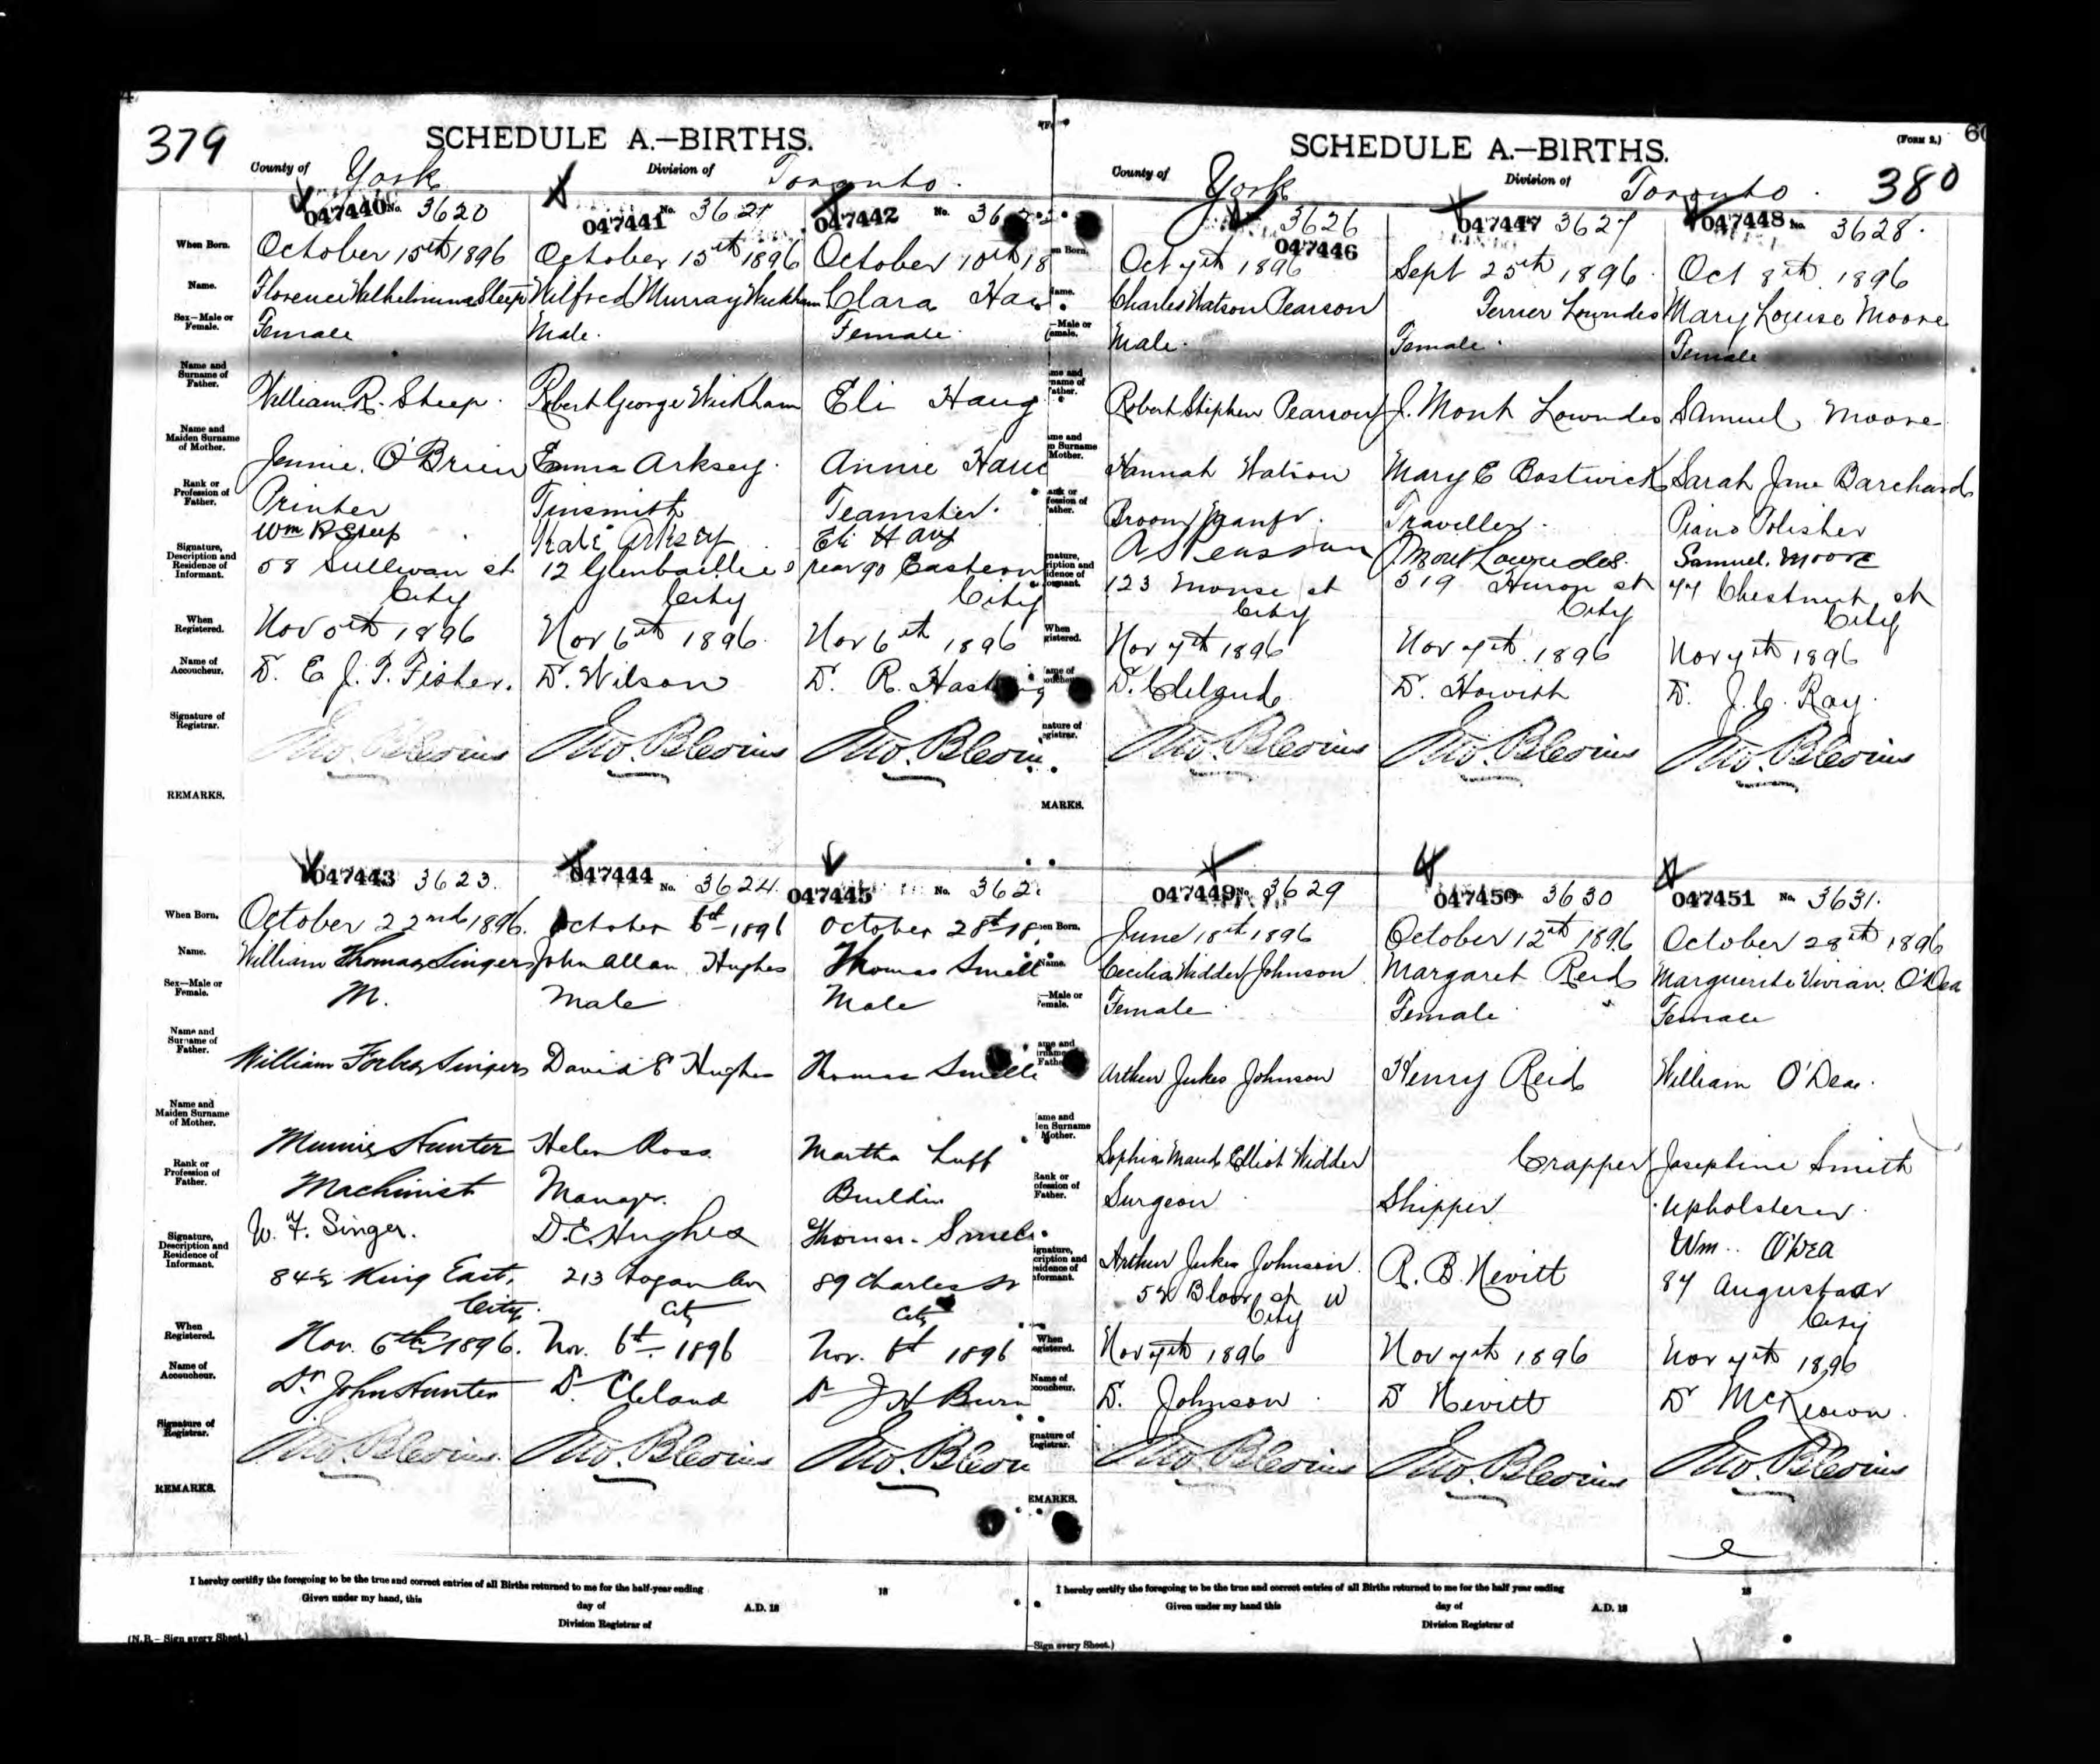 379
SCHEDULE A.—BIRTHS.
County of York Division of Toronto.
047440 No. 3620
When Born. October 15th 1896
Name. Florence Wilhelmina Sleep
Sex—Male or Female. Female
Name and Surname of Father. William R. Sleep.
Name and Maiden Surname of Mother. Jennie O'Brien
Rank or Profession of Father. Printer
Signature, Description and Residence of Informant. Wm R Sleep
58 Sullivan st
City
When Registered. Nov 5th 1896
Name of Accoucheur. Dr. E. J. T. Fisher.
Signature of Registrar. Jno. Blevins
REMARKS.
047441 No. 3621
October 15th 1896
Wilfred Murray Wickham
Male.
Robert George Wickham
Emma Arksey.
Tinsmith
Kate Arksey
12
City
Nov 6th 1896.
Dr. Wilson
Jno. Blevins
047442 No. 36
October 10th 18
Clara Hau
Female.
Eli Haug
Annie Hau
Teamster.
Eli Haug
rear 90 Eastern
City
Nov 6th 1896
Dr. R.
Jno. Blevin
047443 3623.
When Born. October 22nd 1896.
Name. William Thomas Singers
Sex—Male or Female. M.
Name and Surname of Father. William Forbes Singers
Name and Maiden Surname of Mother. Minnie Hunter
Rank or Profession of Father. Machinist
Signature, Description and Residence of Informant. W. F. Singer.
84½ King East.
City.
When Registered. Nov. 6th 1896.
Name of Accoucheur. Dr. John Hunter
Signature of Registrar. Jno. Blevins
REMARKS.
047444 No. 3624.
October 6th 1896
John Allan Hughes
Male
David E Hughes
Helen Ross
Manager.
D. E. Hughes
213 Logan Av
City
Nov. 6th 1896
Dr. Cleland
Jno. Blevins
047445 No. 362
October 28th 18
Thomas Smell
Male
Thomas Smelle
Martha Luff
Builder
Thomas
89 Charles St
City
Nov. 6th 1896
Dr J H Burn
Jno. Blevin
I hereby certifiy the foregoing to be the true and correct entries of all Births returned to me for the half-year ending 18
Given under my hand, this day of A.D. 18
Division Registrar of
(N.B.—Sign every Sheet.)
(FORM 2.) 60
SCHEDULE A.—BIRTHS.
380
County of York Division of Toronto.
3626
047446
Oct 7th 1896
Charles Watson Pearson
Male.
Robert Stephen Pearson
Hannah Watson
Broom Manfr.
123 Morse st
City
Nov 7th 1896
Dr. Cleland
Jno. Blevins
MARKS.
047447 3627
Sept 25th 1896.
Ferrier Lowndes
Female.
J. Mont Lowndes
Mary E Bostwick
Traveller.
J Mont Lowndes.
519 Huron st
City
Nov 7th 1896
Dr. Howitt
Jno. Blevins
047448 No. 3628.
Oct 8th 1896
Mary Louise Moore
Female
Samuel Moore
Sarah Jane Barchard
Piano Polisher
Samuel. Moore
44 Chestnut st
City
Nov 7th 1896
Dr. J. C. Ray.
Jno. Blevins
047449 No. 3629
June 18th 1896
Cecilia Widder Johnson
Female
Arthur Jukes Johnson
Sophia Maud Elliot Widder
Surgeon
Arthur Jukes Johnson.
52 Bloor st W
City
Nov 7th 1896
Dr. Johnson
Jno. Blevins
EMARKS.
047450 3630
October 12th 1896
Margaret Reid
Female
Henry Reid
Crapper
Shipper
R. B. Nevitt
Nov 7th 1896
Dr Nevitt
Jno. Blevins
047451 No. 3631.
October 28th 1896
Marguerite Vivian. O'Dea
Female
William O'Dea.
Josephine Smith
Upholsterer.
Wm. O'Dea
87 Augusta av
City
Nov 7th 1896
Dr McKeown.
Jno. Blevins
I hereby certify the foregoing to be the true and correct entries of all Births returned to me for the half year ending 18
Given under my hand this day of A.D. 18
Division Registrar of
Sign every Sheet.)